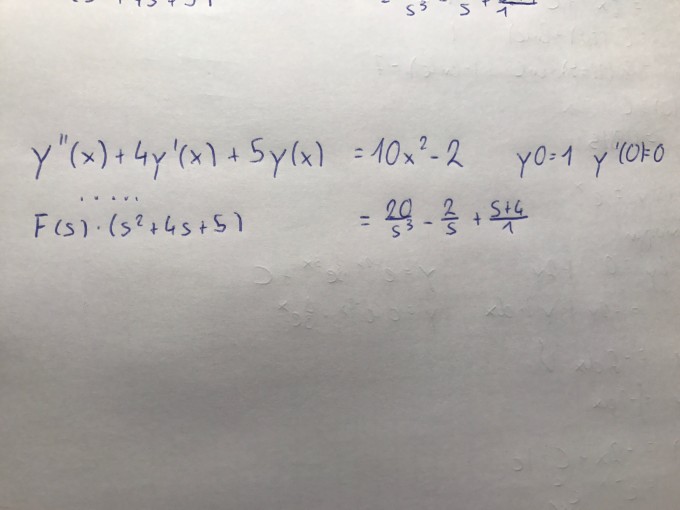 y''(x) + 4y'(x) + 5y(x) = 10x² - 2 y0=1 y'(0)=0
.....
F(s) · (s² + 4s + 5) = 20/s³ - 2/s + s+4/1